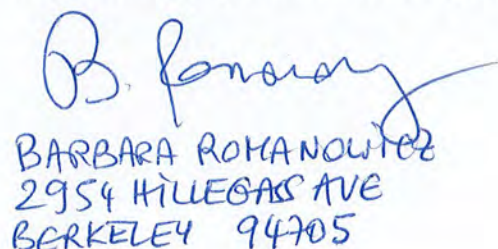 B. Romanowicz
BARBARA ROMANOWICZ
2954 HILLEGASS AVE
BERKELEY 94705